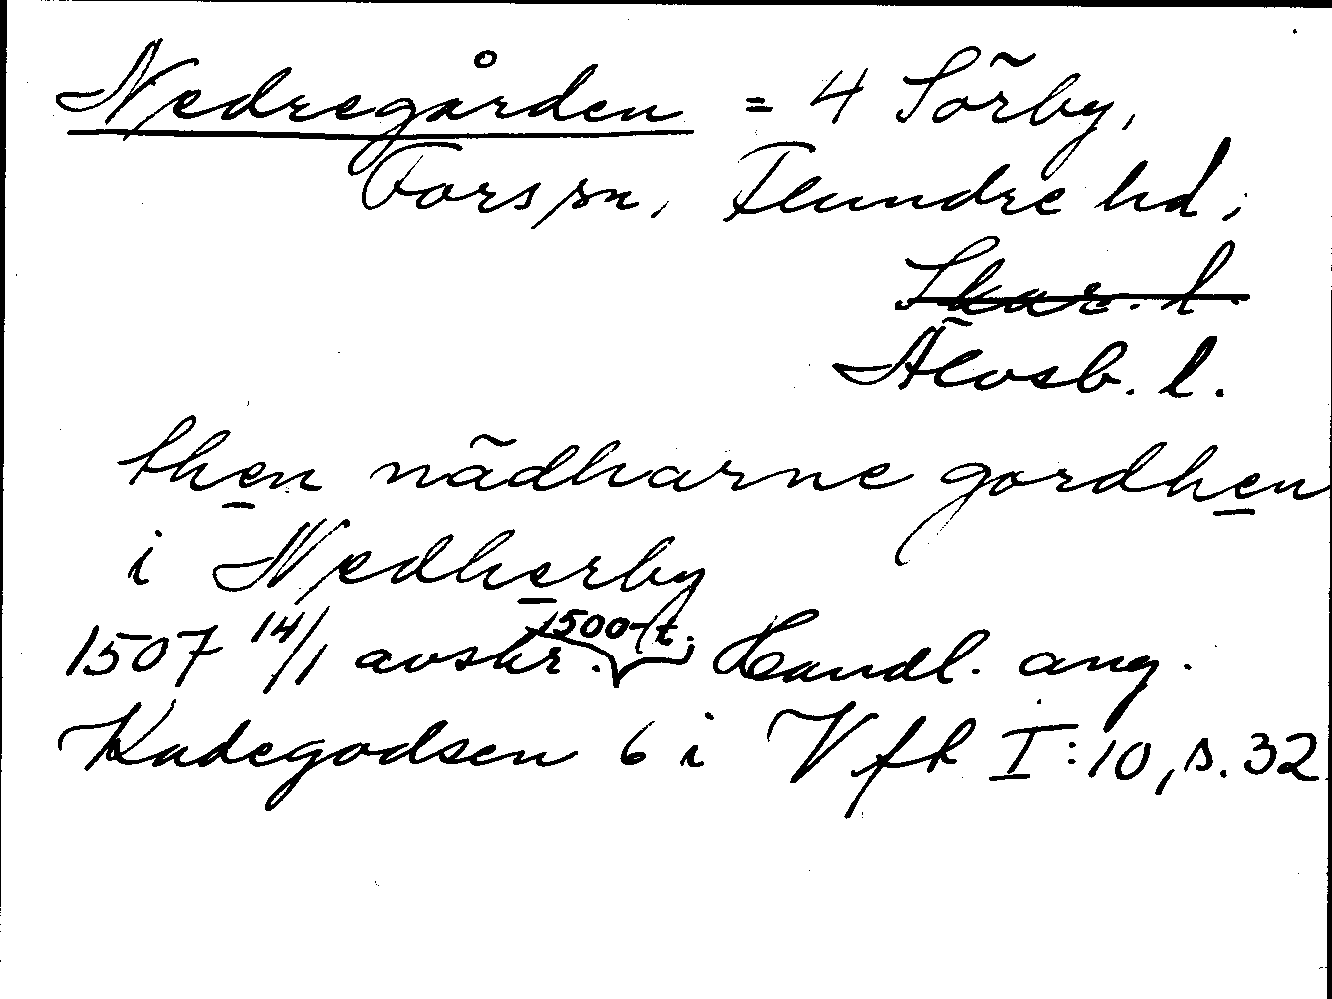 Nedregården = 4 Sörby,
Fors sn, Flundre hd,
Skar. l.
Älvsb. l.
then nädharne gordhen
i Nedherby
1507 14/1 avskr. 1500-t. Handl. ang.
Kadegodsen 6 i Vfh I:10, s. 32